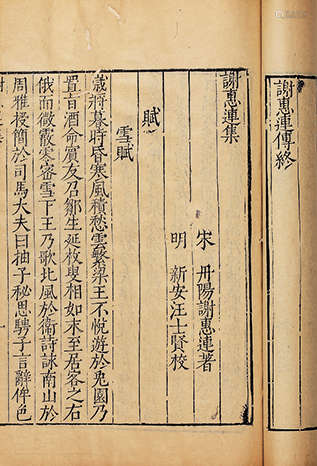 謝惠連傳終
謝惠連集
宋 丹陽謝惠連著
明 新安汪士賢校
賦
雪賦
歲將暮時昏寒風積愁雲繁梁王不悅遊於兎園乃
置旨酒命賓友召鄒生延枚叟相如末至居客之右
俄而微霰零密雪下王乃歌北風於衛詩詠南山於
周雅授簡於司馬大夫曰抽子秘思騁子言辭侔色